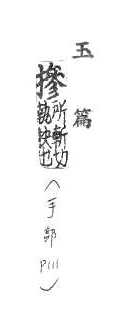 玉篇
摻所斬切執袂也(手部P111)